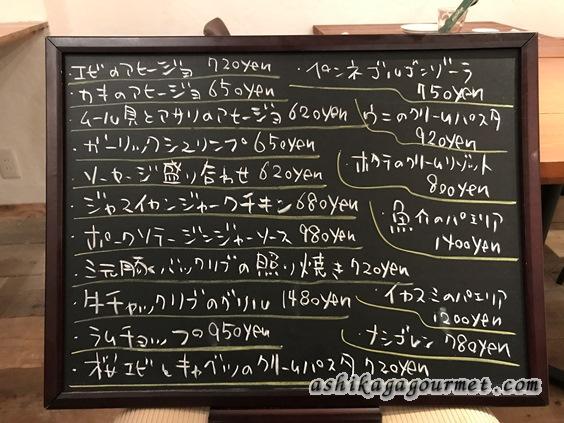 ・エビのアヒージョ 720yen
・カキのアヒージョ 650yen
・ムール貝とアサリのアヒージョ 620yen
・ガーリックシュリンプ 650yen
・ソーセージ盛り合わせ 620yen
・ジャマイカンジャークチキン 680yen
・ポークソテージンジャーソース 980yen
・三元豚バックリブの照り焼き 720yen
・牛チャックリブのグリル 1480yen
・ラムチョップの 950yen
・桜エビとキャベツのクリームパスタ 720yen
・ペンネゴルゴンゾーラ
750yen
・ウニのクリームパスタ
920yen
・ホタテのクリームリゾット
800yen
・魚介のパエリア
1400yen
・イカスミのパエリア
1200yen
・ナシゴレン 780yen
ashikagagourmet.com